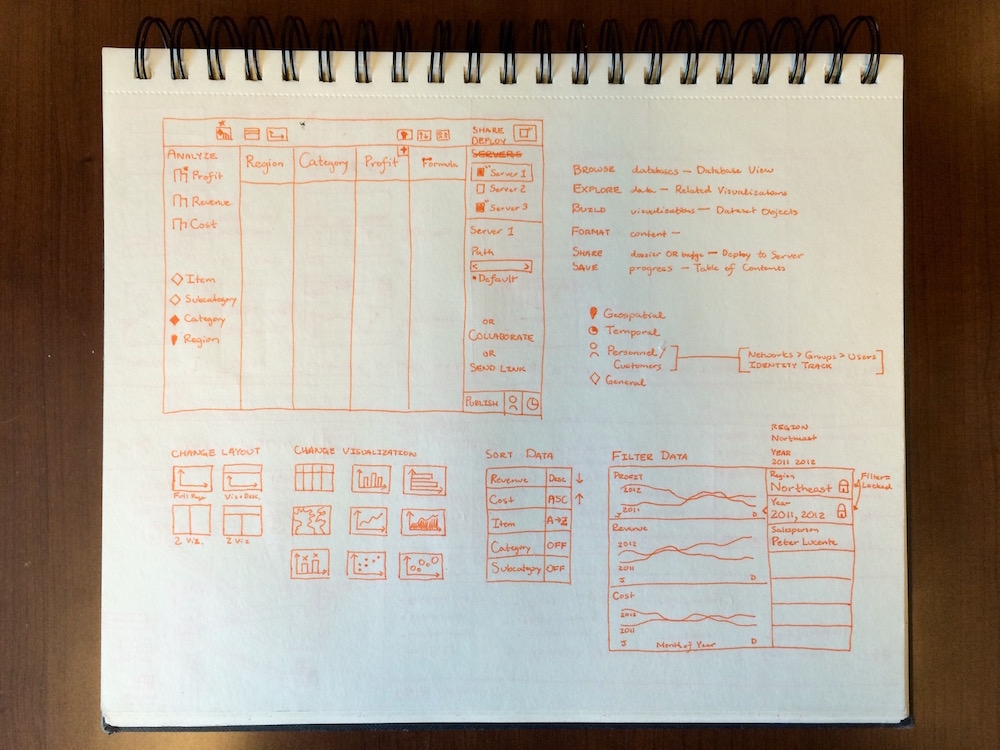 SHARE
DEPLOY
ANALYZE
Profit
Revenue
Cost
Item
Subcategory
Category
Region
Region Category Profit + Formula
SERVERS
Server 1
Server 2
Server 3
Server 1
Path
< >
*Default
OR
COLLABORATE
OR
SEND LINK
PUBLISH
BROWSE databases — Database View
EXPLORE data — Related Visualizations
BUILD visualizations — Dataset Objects
FORMAT content —
SHARE dossier OR badge — Deploy to Server
SAVE progress — Table of Contents
Geospatial
Temporal
Personnel/
Customers
General
[Networks > Groups > Users
IDENTITY TRACK]
CHANGE LAYOUT
Full Page Vis + Desc.
2 Viz. 2 Viz
CHANGE VISUALIZATION
SORT DATA
Revenue DESC ↓
Cost ASC ↑
Item A→Z
Category OFF
Subcategory OFF
FILTER DATA
REGION
Northeast
YEAR
2011 2012
PROFIT
2012
2011
J D
Revenue
2012
2011
J D
Cost
2012
2011
J Month of Year D
Region
Northeast
Year
2011, 2012
Salesperson
Peter Lucente
Filters
Locked